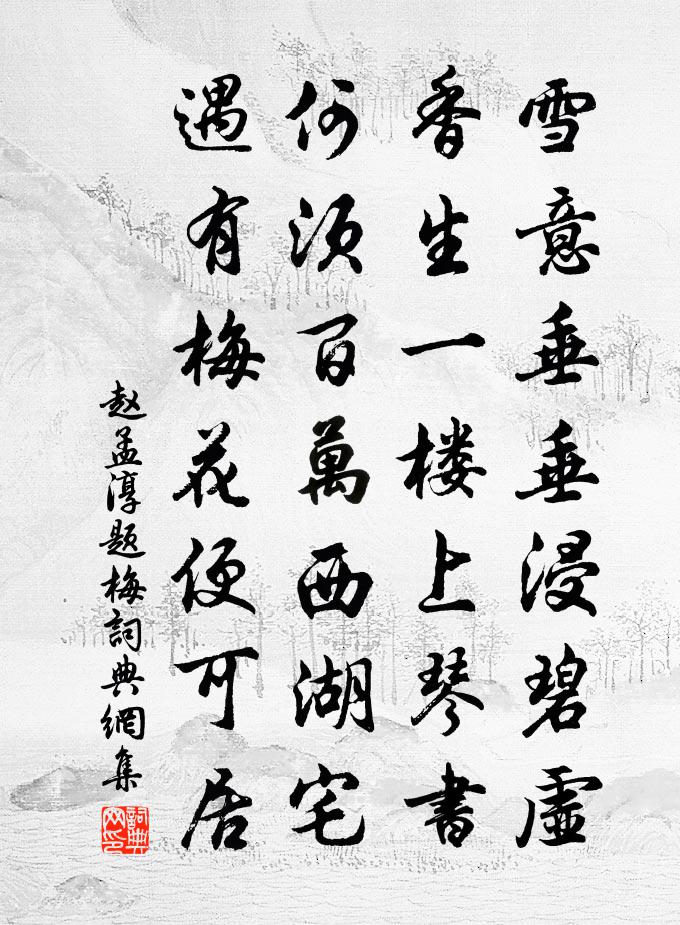 雪意垂垂浸碧虚
香生一楼上琴書
何须百萬西湖宅
遇有梅花便可居
赵孟淳题梅詞典網集
詞典網印